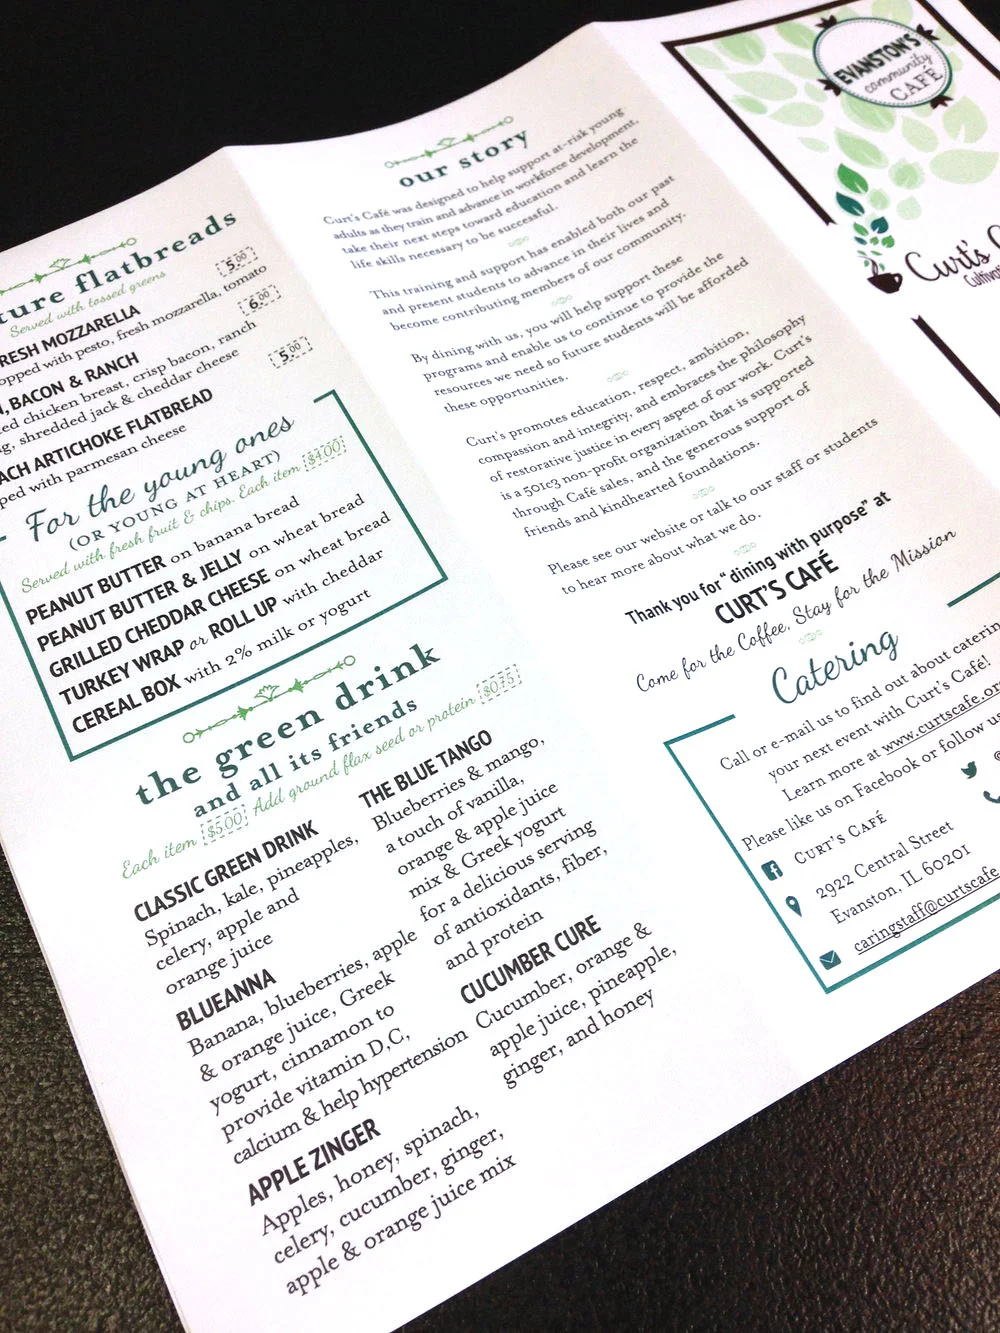 ture flatbreads
Served with tossed greens
FRESH MOZZARELLA 5.00
opped with pesto, fresh mozzarella, tomato
, BACON & RANCH 6.00
ed chicken breast, crisp bacon, ranch
g, shredded jack & cheddar cheese
ACH ARTICHOKE FLATBREAD 5.00
ped with parmesan cheese
For the young ones
(OR YOUNG AT HEART)
Served with fresh fruit & chips. Each item $4.00
PEANUT BUTTER on banana bread
PEANUT BUTTER & JELLY on wheat bread
GRILLED CHEDDAR CHEESE on wheat bread
TURKEY WRAP or ROLL UP with cheddar
CEREAL BOX with 2% milk or yogurt
the green drink
and all its friends
Each item $5.00 Add ground flax seed or protein $0.75
CLASSIC GREEN DRINK
Spinach, kale, pineapples,
celery, apple and
orange juice
BLUEANNA
Banana, blueberries, apple
& orange juice, Greek
yogurt, cinnamon to
provide vitamin D,C,
calcium & help hypertension
APPLE ZINGER
Apples, honey, spinach,
celery, cucumber, ginger,
apple & orange juice mix
THE BLUE TANGO
Blueberries & mango,
a touch of vanilla,
orange & apple juice
mix & Greek yogurt
for a delicious serving
of antioxidants, fiber,
and protein
CUCUMBER CURE
Cucumber, orange &
apple juice, pineapple,
ginger, and honey
our story
Curt's Café was designed to help support at-risk young
adults as they train and advance in workforce development,
take their next steps toward education and learn the
life skills necessary to be successful.
This training and support has enabled both our past
and present students to advance in their lives and
become contributing members of our community.
By dining with us, you will help support these
programs and enable us to continue to provide the
resources we need so future students will be afforded
these opportunities.
Curt's promotes education, respect, ambition,
compassion and integrity, and embraces the philosophy
of restorative justice in every aspect of our work. Curt's
is a 501c3 non-profit organization that is supported
through Café sales, and the generous support of
friends and kindhearted foundations.
Please see our website or talk to our staff or students
to hear more about what we do.
Thank you for " dining with purpose" at
CURT'S CAFÉ
Come for the Coffee, Stay for the Mission
Catering
Call or e-mail us to find out about catering
your next event with Curt's Café!
Learn more at www.curtscafe.org
Please like us on Facebook or follow us
CURT'S CAFÉ
2922 Central Street
Evanston, IL 60201
caringstaff@curtscafe.
EVANSTON'S
community
CAFÉ
Curt's
Cultivat